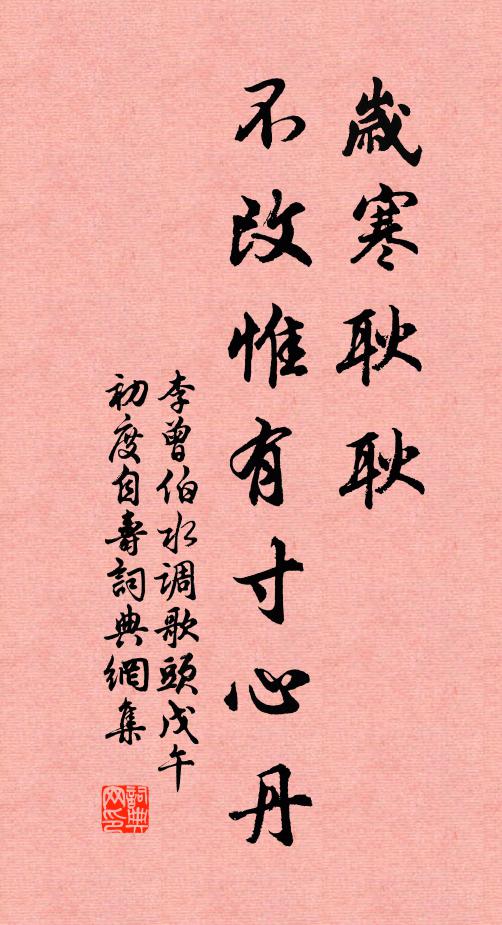 歲寒耿耿
不改惟有寸心丹
李曾伯水调歌頭戊午
初度自壽詞典網集
詞典网印